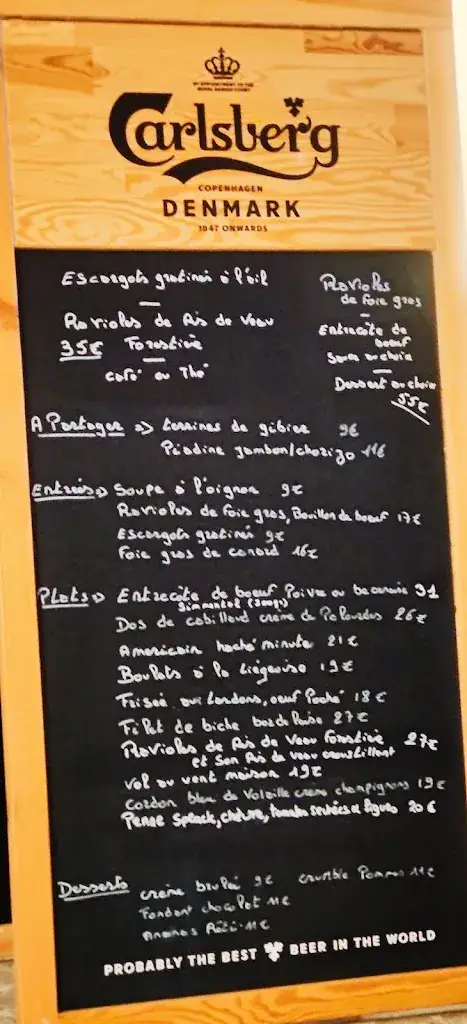 BY APPOINTMENT TO THE
ROYAL DANISH COURT
Carlsberg
COPENHAGEN
DENMARK
1847 ONWARDS
Escargots gratinés à l'ail
—
Ravioles de Ris de Veau
35€ Forestière
—
Café ou Thé
Ravioles
de foie gras
–
Entrecôte de
boeuf
Sauce au choix
–
Dessert au choix
55€
A Partager => terrines de gibier 9€
Piadine jambon/chorizo 11€
Entrées => Soupe à l'oignon 9€
Ravioles de foie gras, Bouillon de boeuf 17€
Escargots gratinés 9€
Foie gras de canard 16€
Plats => Entrecôte de boeuf Poivre ou bearnaise 31
Simmental (300gr)
Dos de cabillaud creme de Palourdes 26€
Americain haché minute 21€
Boulets à la liégeoise 19€
Frisée aux lardons, oeuf Poché 18€
Filet de biche 27€
Ravioles de Ris de Veau Forestière 27€
et Son Ris de veau croustillant
Vol au vent maison 19€
Cordon bleu de Volaille creme champignons 19€
Penne Speack, chèvre, tomates séchées et figues 20€
Desserts creme brulée 9€ crumble Pommes 11€
Fondant chocolat 11€
Ananas Rôti 11€
PROBABLY THE BEST BEER IN THE WORLD